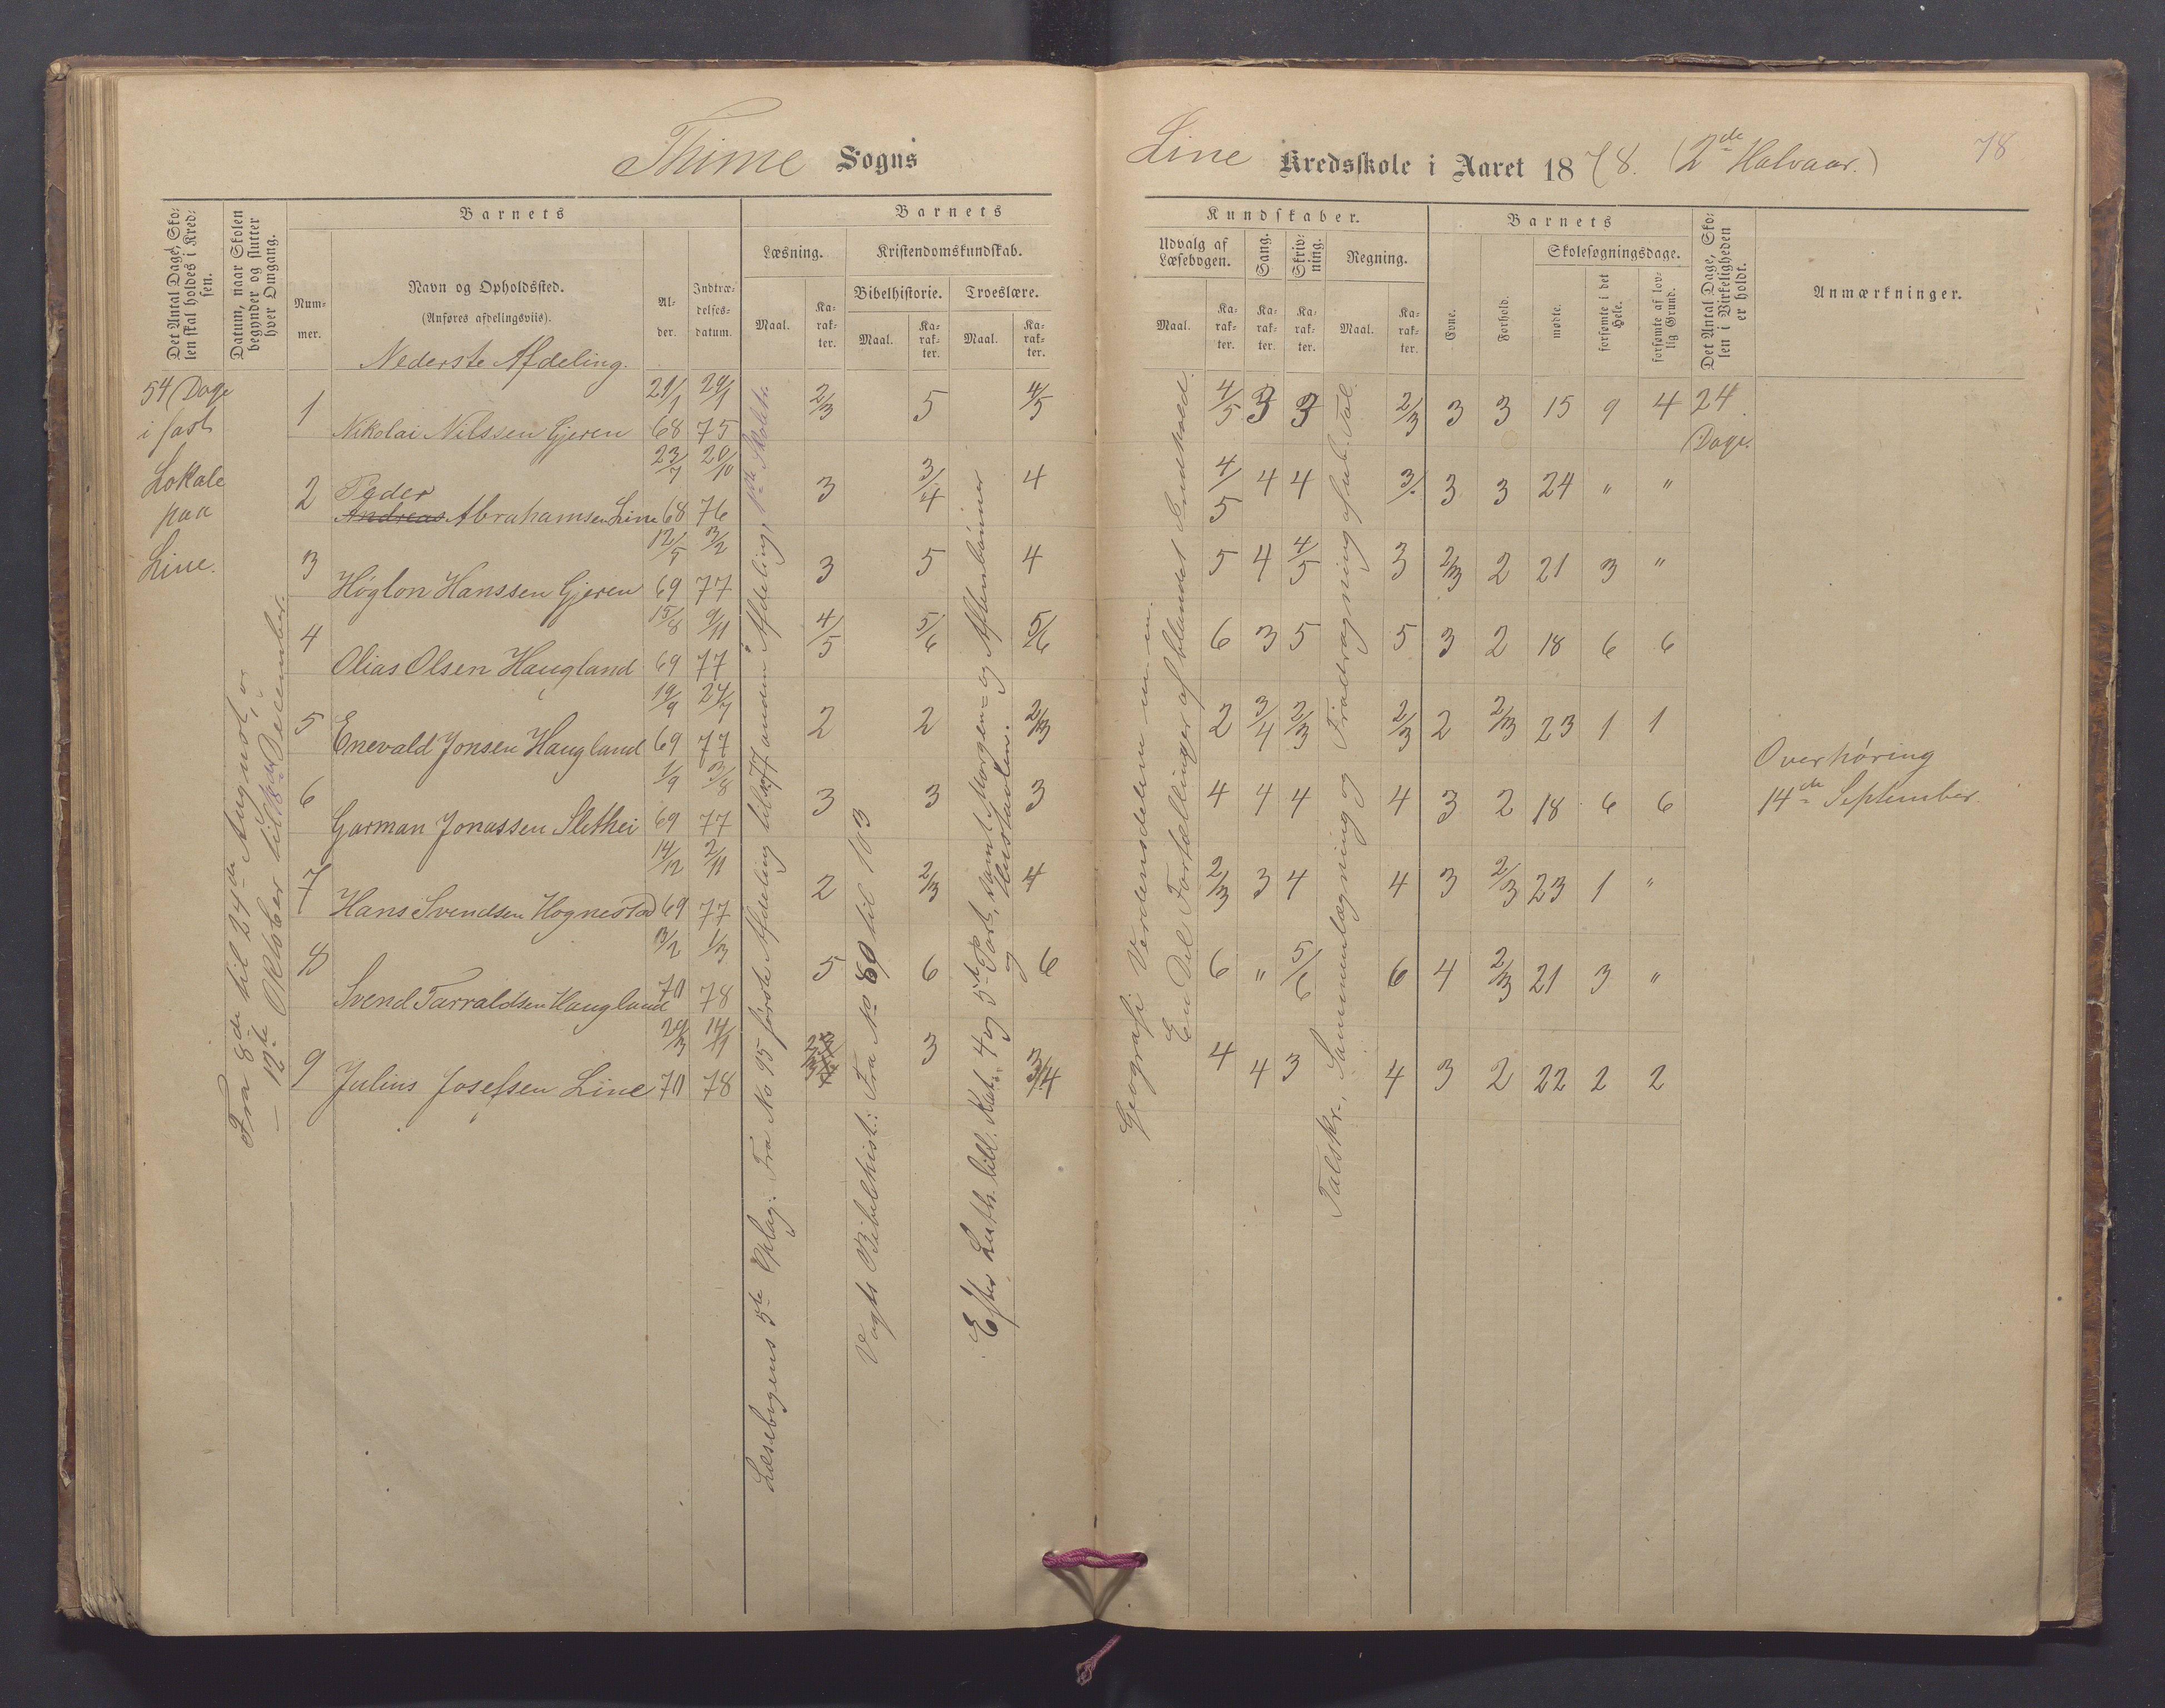 Thime Sogns
Line Kredsskole i Aaret 1878. (2de Halvaar.)
78
Det Antal Dage, Sko-
len skal holdes i Kred-
sen.
Datum, naar Skolen
begynder og slutter
hver Omgang.
Barnets
Num-
mer.
Navn og Opholdssted.
(Anføres afdelingsviis).
Nederste Afdeling.
Al-
der.
Indtræ-
delses-
datum.
Barnets
Læsning.
Maal.
Ka-
rak-
ter.
Kristendomskundskab.
Bibelhistorie.
Maal.
Ka-
rak-
ter.
Troeslære.
Maal.
Ka-
rak-
ter.
Kundskaber.
Udvalg af
Læsebogen.
Maal.
Ka-
rak-
ter.
Sang.
Ka-
rak-
ter.
Skriv-
ning.
Ka-
rak-
ter.
Regning.
Maal.
Ka-
rak-
ter.
Barnets
Evne.
Forhold.
Skolesøgningsdage.
mødte.
forsømte i det
Hele.
forsømte af lov-
lig Grund.
Det Antal Dage, Sko-
len i Virkeligheden
er holdt.
Anmærkninger.
54 Dage
i fast
Lokale
paa
Line.
Fra 8de til 24de August, og
— 12te Oktober til December.
1 Nikolai Nilssen Gjeren 21/1 68 24/1 75 2/3 5 4/5 4/5 3 3 2/3 3 3 15 9 4 24 Dage.
2 Peder Andreas Abrahamsen Line 23/7 68 20/10 76 3 3/4 4 4/5 4 4 3/. 3 3 24 " "
3 Høglon Hanssen Gjeren 12/5 69 3/2 77 3 5 4 5 4 4/5 3 2/3 2 21 3 "
4 Olias Olsen Haugland 15/8 69 9/11 77 4/5 5/6 5/6 6 3 5 5 3 2 18 6 6
5 Enevald Jonsen Haugland 19/9 69 24/7 77 2 2 2/3 2 3/4 2/3 2/3 2 2/3 23 1 1
6 Garman Jonassen Slethei 1/9 69 3/8 77 3 3 3 4 4 4 4 3 2 18 6 6
7 Hans Svendsen Hognestad 14/12 69 2/11 77 2 2/3 4 2/3 3 4 4 3 2/3 23 1 "
8 Svend Tarraldsen Haugland 13/2 70 1/3 78 5 6 6 6 " 5/6 6 4 2/3 21 3 "
9 Julius Josefsen Line 29/3 70 14/1 78 3 3/4 4 4 3 4 3 2 22 2 2
Læsebogens 5te Oplag: Fra No 95 første Afdeling til 77 anden Afdeling, 1ste Skoletr.
Vogts Bibelhist.: Fra No 69 til 103
Efter Luth. lill. Kat. 4 og 5te Part, samt Morgen- og Aftenbønner
og Hustavlen.
Geografi Verdensdelene m. m.
En Del Fortællinger af blandet Indhold.
Talskr., Sammenlægning og Fradragning af ub. Tal.
Overhøring
14de September.